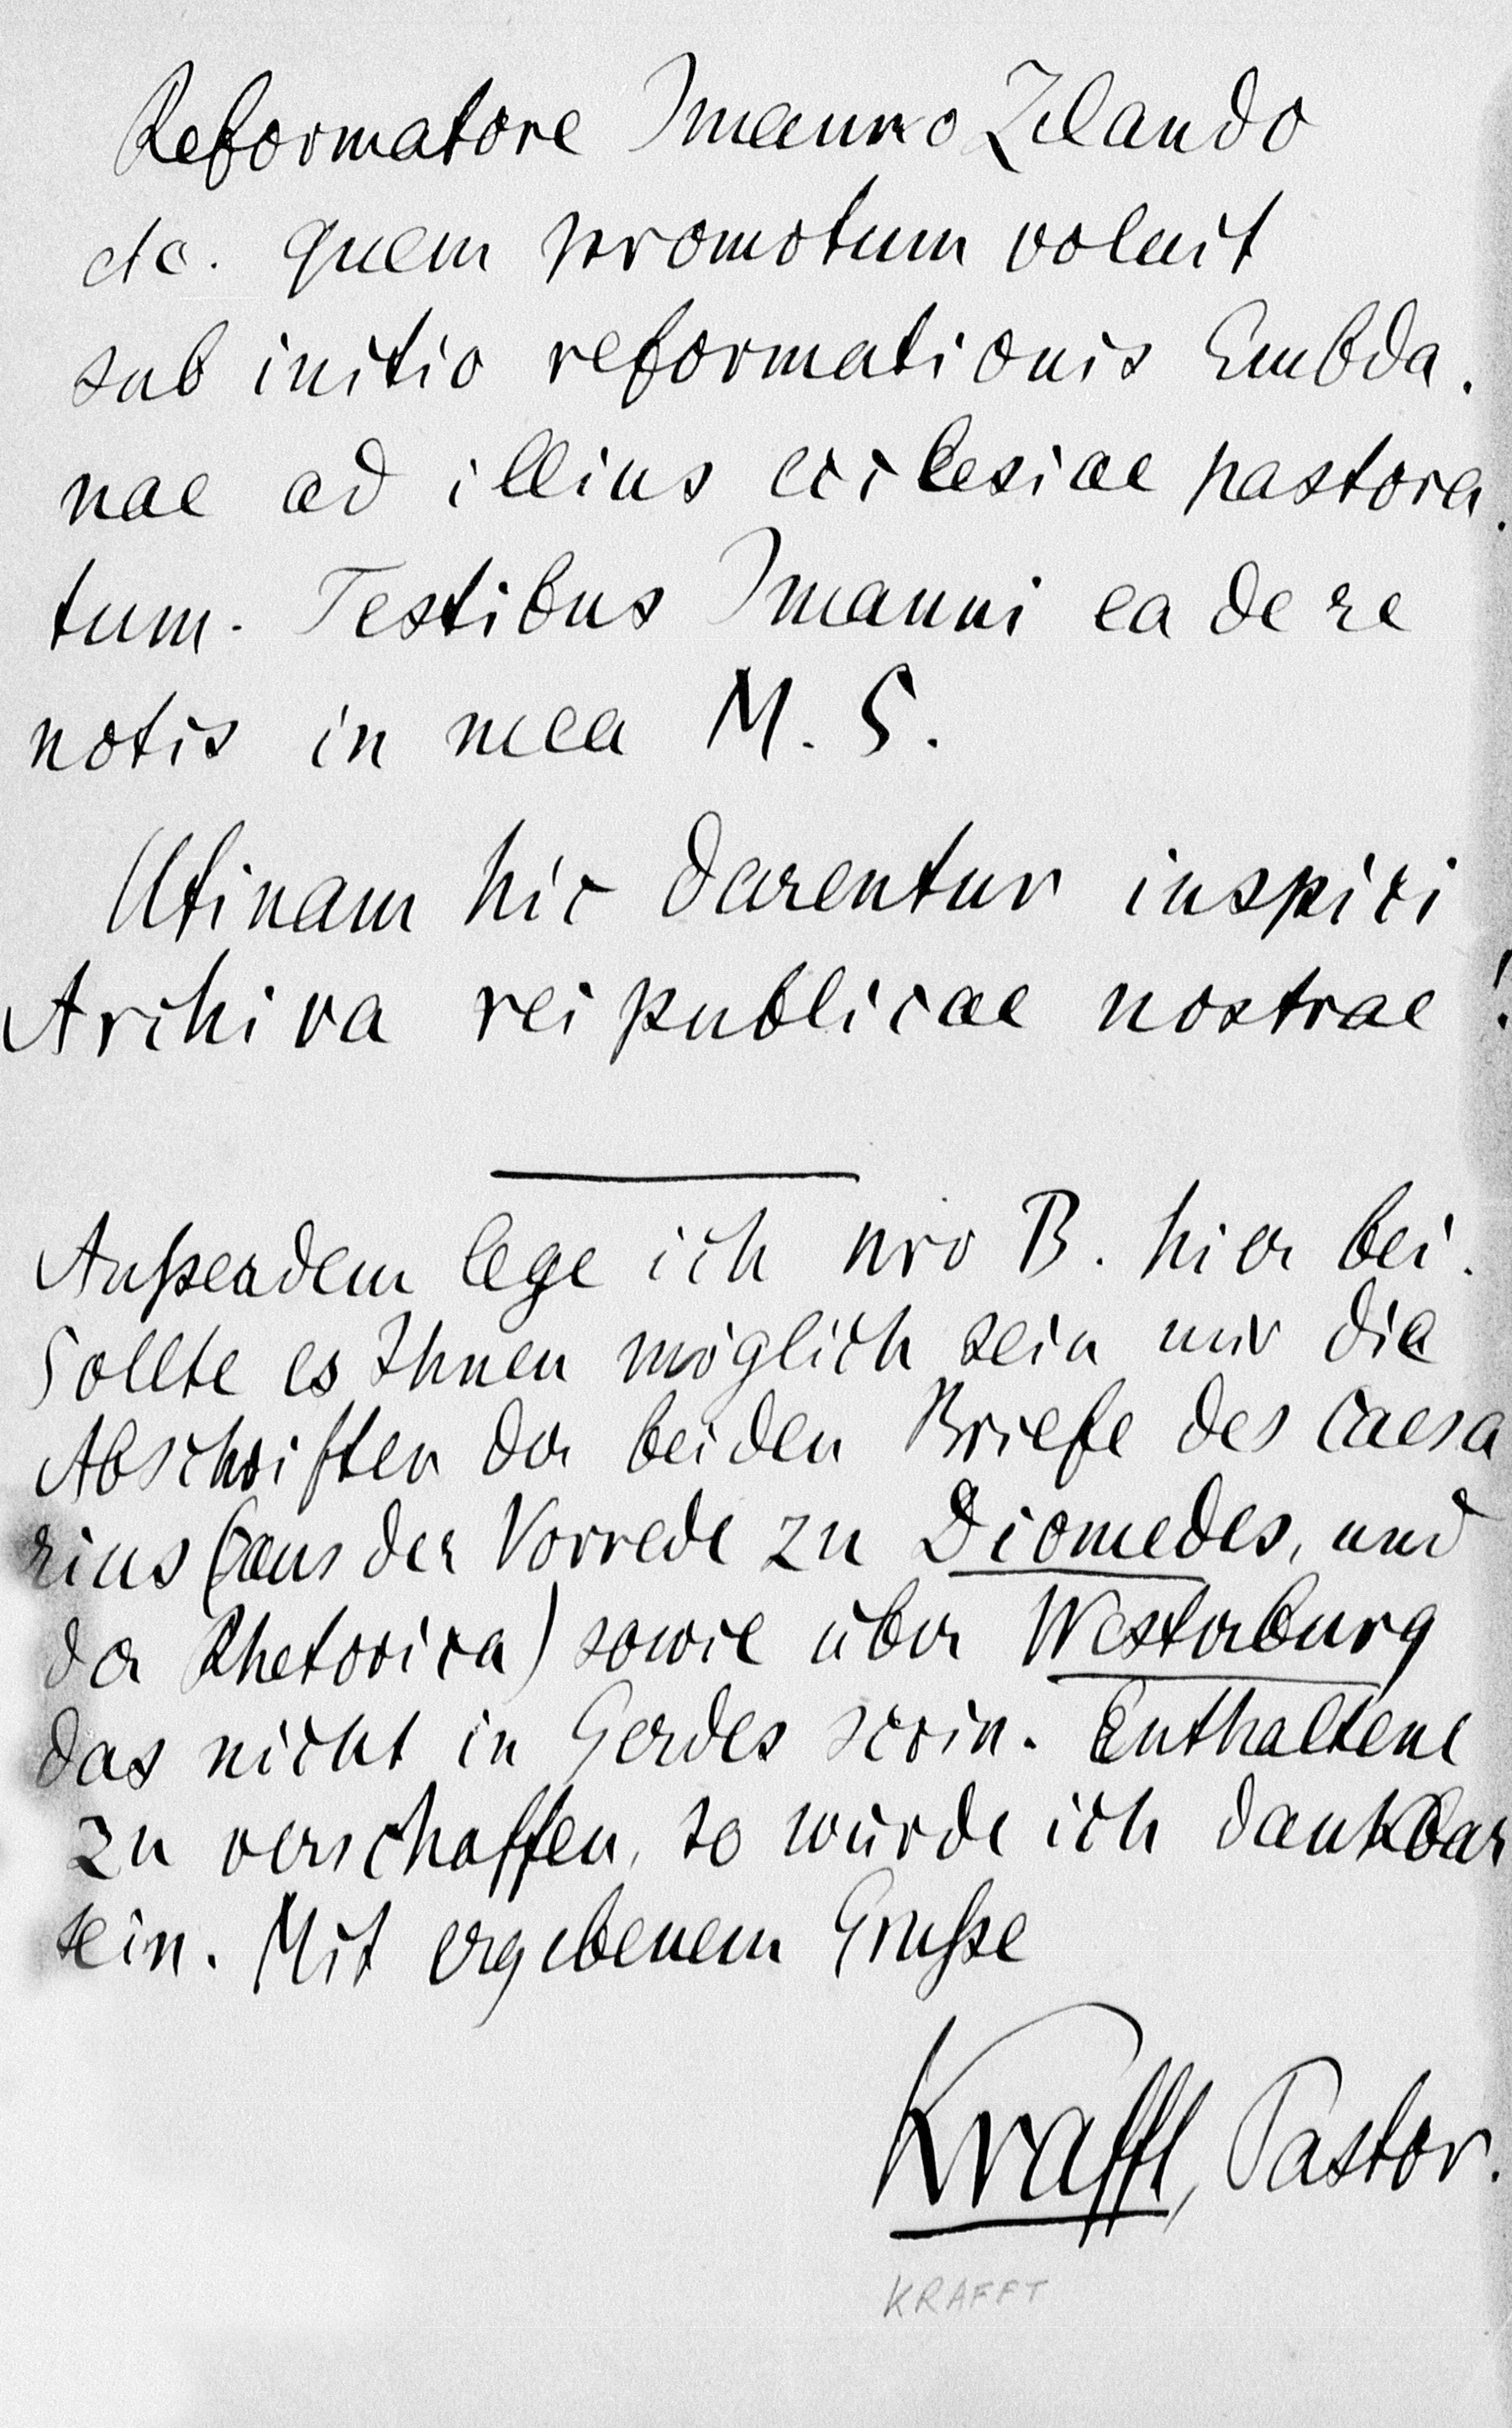 Reformatore Imanno Zelando
etc. quem promotum voluit
sub initio reformationis Embda.
nae ad illius ecclesiae pastora.
tum. Testibus Imanni ea de re
notis in mea M. S.
Utinam hic darentur inspici
Archiva reipublicae nostrae!
Außerdem lege ich nro B. hier bei.
Sollte es Ihnen möglich sein mir die
Abschriften der beiden Briefe des Caesa
rius (aus der Vorrede zu Diomedes, und
der Rhetorica) sowie über Westerburg
das nicht in Gerdes scrin. Enthaltene
zu verschaffen, so würde ich dankbar
sein. Mit ergebenem Gruße
Krafft, Pastor.
KRAFFT